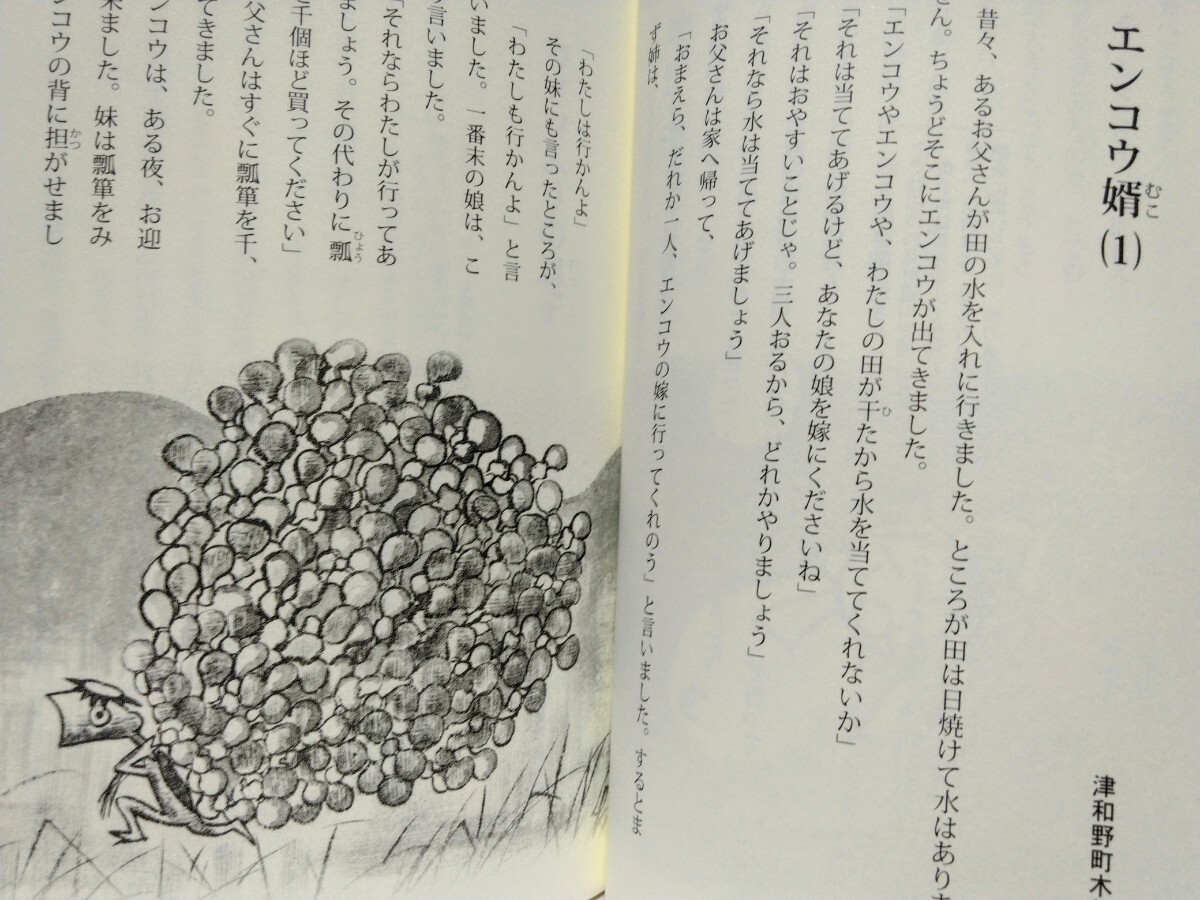 エンコウ婿(1)
むこ
津和野町木
昔々、あるお父さんが田の水を入れに行きました。ところが田は日焼けて水はありま
せん。ちょうどそこにエンコウが出てきました。
「エンコウやエンコウや、わたしの田が干たから水を当ててくれないか」
ひ
「それは当ててあげるけど、あなたの娘を嫁にくださいね」
「それはおやすいことじゃ。三人おるから、どれかやりましょう」
「それなら水は当ててあげましょう」
お父さんは家へ帰って、
「おまえら、だれか一人、エンコウの嫁に行ってくれのう」と言いました。するとま
ず姉は、
「わたしは行かんよ」
その妹にも言ったところが、
「わたしも行かんよ」と言
いました。一番末の娘は、こ
う言いました。
「それならわたしが行ってあ
ましょう。その代わりに瓢
ひょう
と千個ほど買ってください」
父さんはすぐに瓢箪を千、
てきました。
ンコウは、ある夜、お迎
来ました。妹は瓢箪をみ
コウの背に担がせまし
かつ